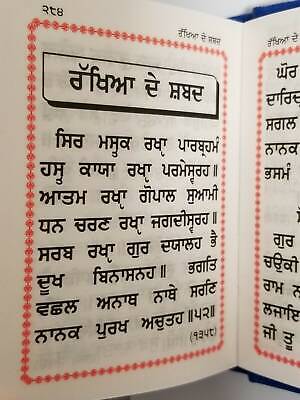 ੨੮੪
ਰੱਖਿਆ ਦੇ ਸ਼ਬਦ
ਰੱਖਿਆ ਦੇ ਸ਼ਬਦ
ਸਿਰ ਮਸ੍ਤਕ ਰਖ੍ਯਾ ਪਾਰਬ੍ਰਹਮੰ
ਹਸ੍ਤ ਕਾਯਾ ਰਖ੍ਯਾ ਪਰਮੇਸ੍ਵਰਹ॥
ਆਤਮ ਰਖ੍ਯਾ ਗੋਪਾਲ ਸੁਆਮੀ
ਧਨ ਚਰਣ ਰਖ੍ਯਾ ਜਗਦੀਸ੍ਵਰਹ॥
ਸਰਬ ਰਖ੍ਯਾ ਗੁਰ ਦਯਾਲਹ ਭੈ
ਦੂਖ ਬਿਨਾਸਨਹ॥ ਭਗਤਿ
ਵੱਛਲ ਅਨਾਥ ਨਾਥੇ ਸਰਣਿ
ਨਾਨਕ ਪੁਰਖ ਅਚੁਤਹ॥੫੨॥
(੧੩੫੮)
ਰੱਖਿਆ ਦੇ ਸ਼ਬਦ
ਘੋਰ
ਦਾਰਿਦ
ਸਗਲ
ਨਾਨਕ
ਭਸਮੰ
ਗੁਰ
ਚਉਕੀ
ਰਾਮ
ਲਜਾਇ
ਜੀ ਤੂ